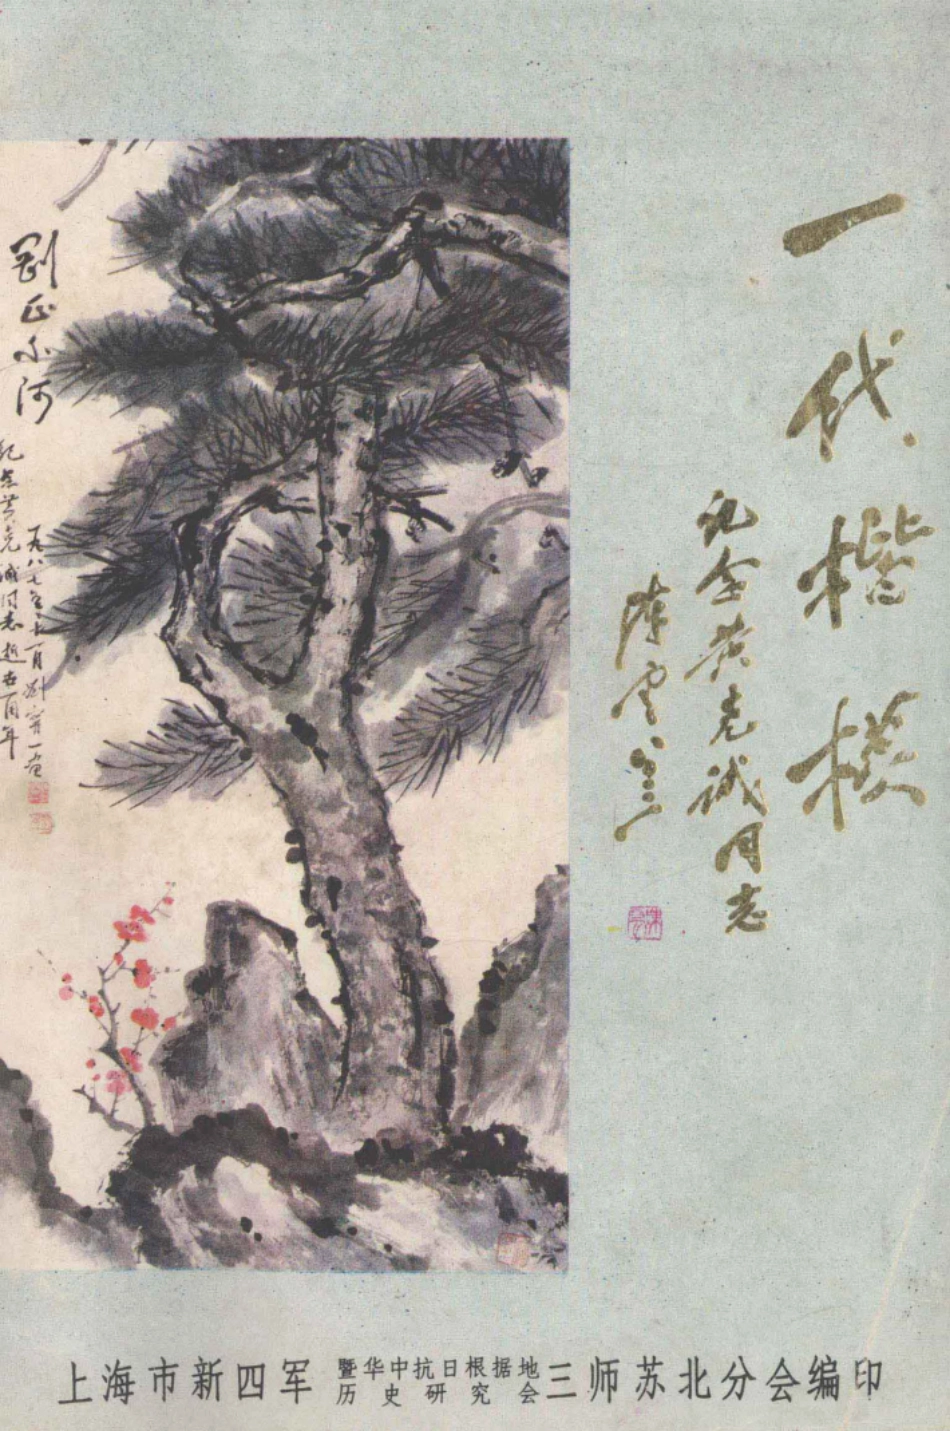 一代楷模
纪念黄克诚同志
陈云
刚正不阿
纪念黄克诚同志逝世一周年
一九八七年十一月刘
上海市新四军暨华中抗日根据地历史研究会三师苏北分会编印